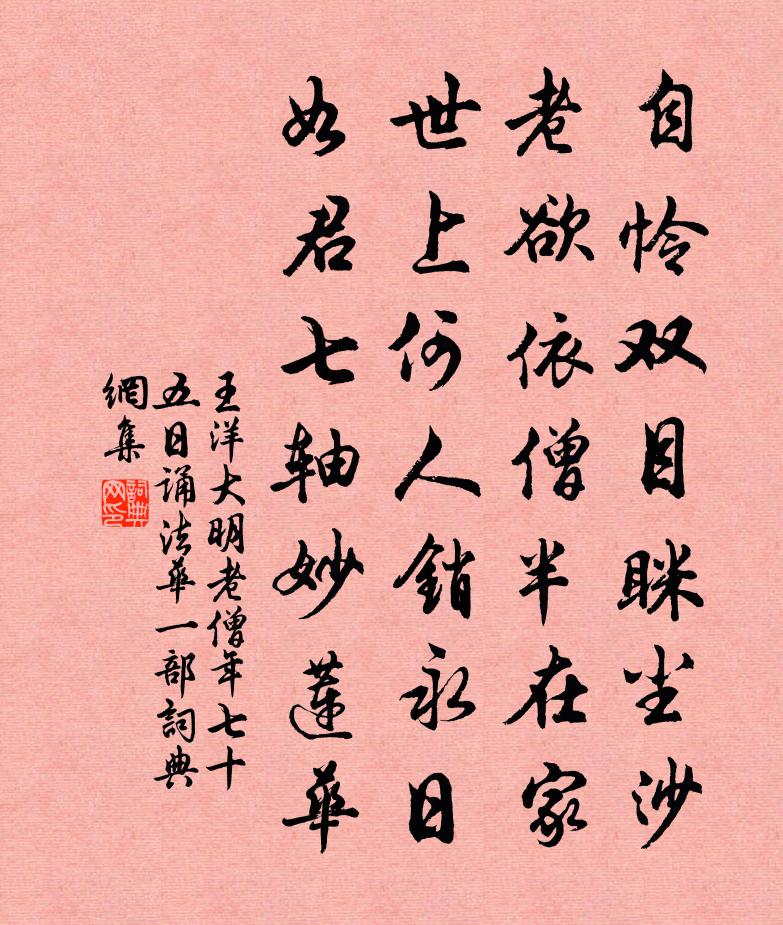 自怜双目眯尘沙
老欲依僧半在家
世上何人销永日
如君七轴妙莲华
王洋大明老僧年七十
五日诵法华一部词典
網集
詞典
网印